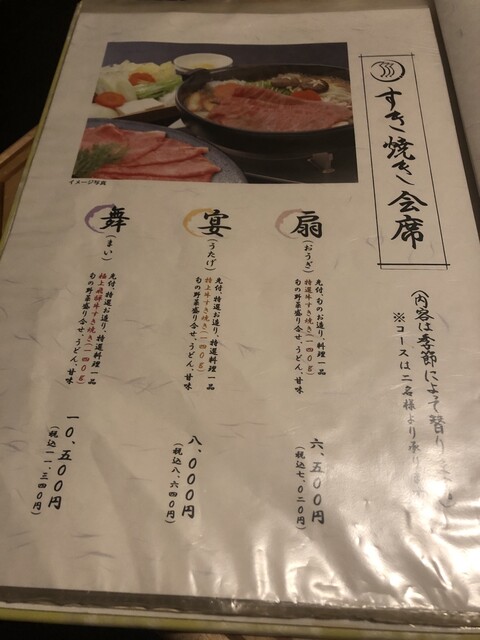 すき焼き会席
(内容は季節によって替り
※コースは二名様より承り
扇
(おうぎ)
先付、旬のお造り、特選料理一品
特選牛すき焼き(一四〇g)
旬の野菜盛り合せ、うどん、甘味
六、五〇〇円
(税込七、〇二〇円)
宴
(うたげ)
先付、特選お造り、特選料理一品
特上牛すき焼き(一四〇g)
旬の野菜盛り合せ、うどん、甘味
八、〇〇〇円
(税込八、六四〇円)
舞
(まい)
先付、特選お造り、特選料理一品
極上飛騨牛すき焼き(一四〇g)
旬の野菜盛り合せ、うどん、甘味
一〇、五〇〇円
(税込一一、三四〇円)
イメージ写真